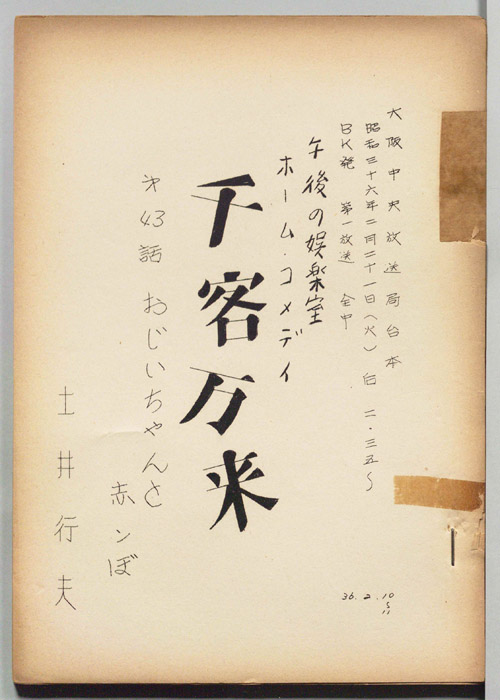 大阪中央放送局台本
昭和三十六年二月二十一日(火) 后 二・三五〜
BK発 第一放送 全中
午後の娯楽室
ホーム・コメデイ
千客万来
才43話 おじいちゃんと
赤ンぼ
土井行夫
36.2.10〜11